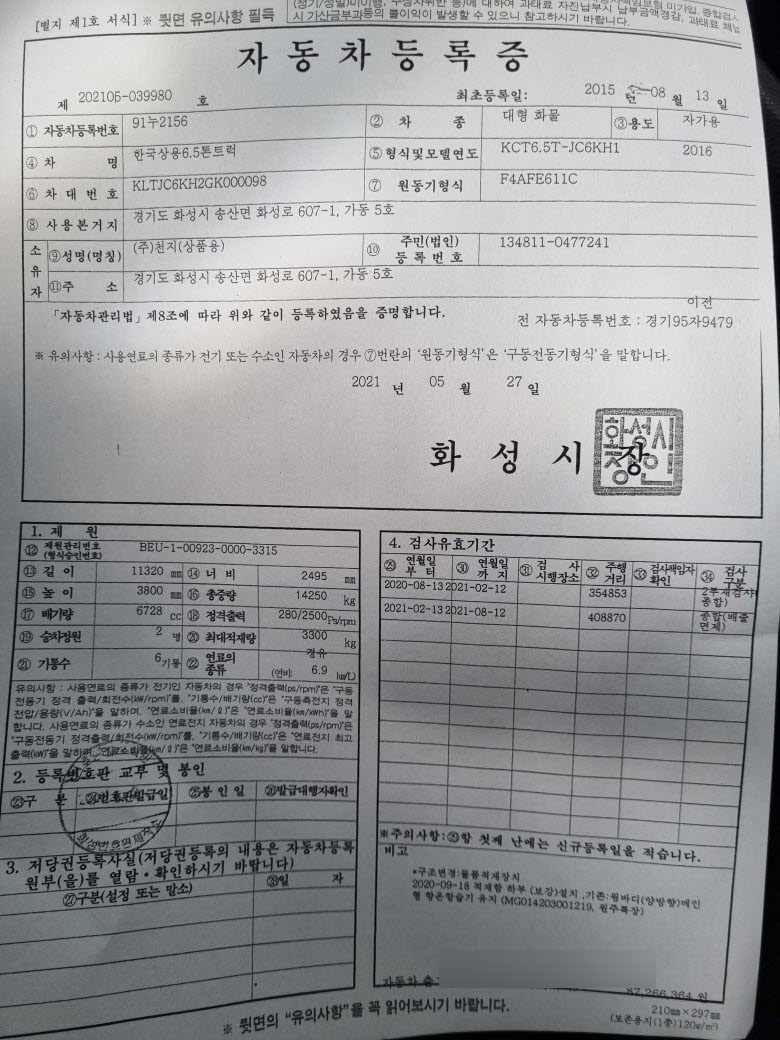 [별지 제1호 서식] ※ 뒷면 유의사항 필독
(정기/정밀)미이행, 구조차위반 등)에 대하여 과태료 자진납부시 납부금액경감, 과태료 체납
시 가산금부과등의 불이익이 발생할 수 있으니 참고하시기 바랍니다.
자동차등록증
제 202105-039980 호
최초등록일: 2015 년 08 월 13 일
① 자동차등록번호 91누2156 ② 차 종 대형 화물 ③용도 자가용
④ 차 명 한국상용6.5톤트럭 ⑤ 형식및모델연도 KCT6.5T-JC6KH1 2016
⑥ 차대번호 KLTJC6KH2GK000098 ⑦ 원동기형식 F4AFE611C
⑧ 사용본거지 경기도 화성시 송산면 화성로 607-1, 가동 5호
소유자 ⑨성명(명칭) (주)천지(상품용) ⑩ 주민(법인)등록번호 134811-0477241
⑪주 소 경기도 화성시 송산면 화성로 607-1, 가동 5호
「자동차관리법」제8조에 따라 위와 같이 등록하였음을 증명합니다.
이전
전 자동차등록번호 : 경기95자9479
※ 유의사항 : 사용연료의 종류가 전기 또는 수소인 자동차의 경우 ⑦번란의 '원동기형식'은 '구동전동기형식'을 말합니다.
2021 년 05 월 27 일
화성시장
1. 제 원
⑫ 제원관리번호 (형식승인번호) BEU-1-00923-0000-3315
⑬ 길 이 11320 mm ⑭ 너 비 2495 mm
⑮ 높 이 3800 mm ⑯ 총중량 14250 kg
⑰ 배기량 6728 cc ⑱ 정격출력 280/2500 Ps/rpm
⑲ 승차정원 2 명 ⑳ 최대적재량 3300 kg
㉑ 기통수 6 기통 ㉒ 연료의 종류 경유 (연비: 6.9 km/L)
유의사항 : 사용연료의 종류가 전기인 자동차의 경우 "정격출력(ps/rpm)"은 "구동
전동기 정격 출력/회전수(kW/rpm)"를, "기통수/배기량(cc)"은 "구동축전지 정격
전압/용량(V/Ah)"을 말하며, "연료소비율(km/ℓ)"은 "연료소비율(km/kWh)"을 말
합니다. 사용연료의 종류가 수소인 연료전지 자동차의 경우 "정격출력(ps/rpm)"은
"구동전동기 정격 출력/회전수(kW/rpm)"를, "기통수/배기량(cc)"은 "연료전지 최고
출력(kW)"을 말하며, "연료소비율(km/ℓ)"은 "연료소비율(km/kg)"을 말합니다.
2. 등록번호판 교부 및 봉인
㉓구 분 ㉔번호판발급일 ㉕봉 인 일 ㉖발급대행자확인
3. 저당권등록사실(저당권등록의 내용은 자동차등록
원부(을)를 열람·확인하시기 바랍니다)
㉗구분(설정 또는 말소) ㉘일 자
4. 검사유효기간
㉙ 연월일부터 ㉚ 연월일까지 ㉛ 검사시행장소 ㉜ 주행거리 ㉝ 검사책임자확인 ㉞ 검사구분
2020-08-13 2021-02-12 354853 2부재검사(종합)
2021-02-13 2021-08-12 408870 종합(배출면제)
※주의사항:㉙항 첫째 난에는 신규등록일을 적습니다.
비고
*구조변경:물품적재장치
2020-09-18 적재함 하부 (보강)설치 ,기존:윙바디(양방향)메인
MG014203001219, 원주특장)
자동차 출
87,266,364 원
210㎜×297㎜
(보존용지(1종)120g/㎡)
※ 뒷면의 "유의사항"을 꼭 읽어보시기 바랍니다.